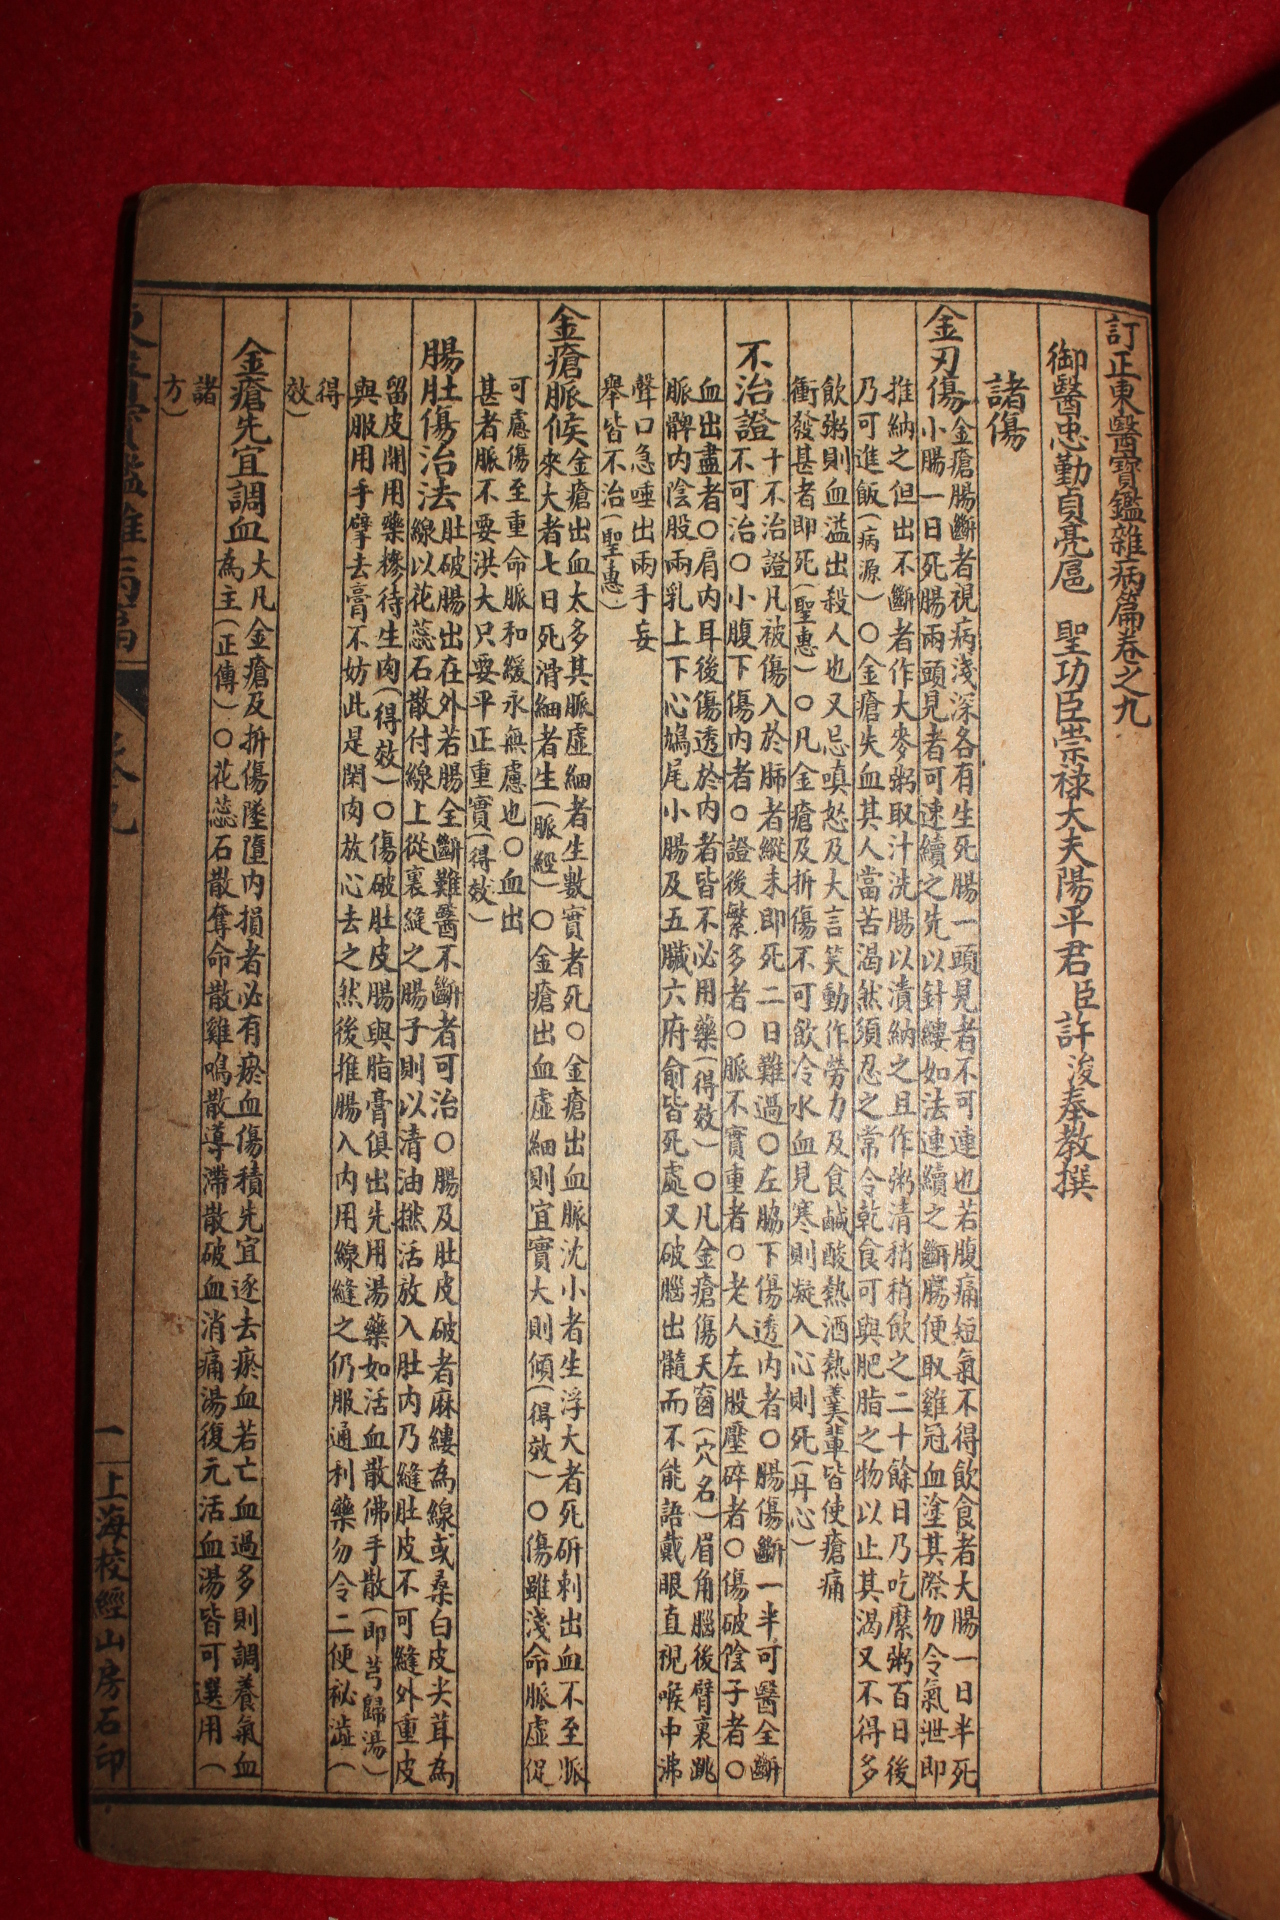 訂正東醫寶鑑雜病篇卷之九
御醫忠勤貞亮扈　聖功臣崇祿大夫陽平君臣許浚奉教撰
諸傷
金刃傷
金瘡腸斷者視病淺深各有生死腸一頭見者不可連也若腹痛短氣不得飲食者大腸一日半死
小腸一日死腸兩頭見者可速續之先以針縷如法連續之斷腸便取雞冠血塗其際勿令氣泄即
推納之但出不斷者作大麥粥取汁洗腸以漬納之且作粥清稍稍飲之二十餘日乃吃糜粥百日後
乃可進飯(病源)○金瘡失血其人當苦渴然須忍之常令乾食可與肥脂之物以止其渴又不得多
飲粥則血溢出殺人也又忌嗔怒及大言笑動作勞力及食鹹酸熱酒熱羹輩皆使瘡痛
衝發甚者即死(聖惠)○凡金瘡及折傷不可飲冷水血見寒則凝入心則死(丹心)
不治證
十不治證凡被傷入於肺者縱未即死二日難過○左脇下傷透內者○腸傷斷一半可醫全斷
不可治○小腹下傷內者○證後繁多者○脈不實重者○老人左股壓碎者○傷破陰子者○
血出盡者○肩內耳後傷透於內者皆不必用藥(得效)○凡金瘡傷天窗(穴名)眉角腦後臂裏跳
脈髀內陰股兩乳上下心鳩尾小腸及五臟六府俞皆死處又破腦出髓而不能語戴眼直視喉中沸
聲口急唾出兩手妄
舉皆不治(聖惠)
金瘡脈候
金瘡出血太多其脈虛細者生數實者死○金瘡出血脈沈小者生浮大者死斫刺出血不至脈
來大者七日死滑細者生(脈經)○金瘡出血虛細則宜實大則傾(得效)○傷雖淺命脈虛促
可慮傷至重命脈和緩永無慮也○血出
甚者脈不要洪大只要平正重實(得效)
腸肚傷治法
肚破腸出在外若腸全斷難醫不斷者可治○腸及肚皮破者麻縷為線或桑白皮尖茸為
線以花蕊石散付線上從裏縫之腸子則以清油撚活放入肚內乃縫肚皮不可縫外重皮
留皮開用藥摻待生肉(得效)○傷破肚皮腸與脂膏俱出先用湯藥如活血散佛手散(即芎歸湯)
與服用手擘去膏不妨此是閑肉放心去之然後推腸入內用線縫之仍服通利藥勿令二便祕澁(
得
效)
金瘡先宜調血
大凡金瘡及折傷墜墮內損者必有瘀血傷積先宜逐去瘀血若亡血過多則調養氣血
為主(正傳)○花蕊石散奪命散雞鳴散導滯散破血消痛湯復元活血湯皆可選用(
諸
方)
一　上海校經山房石印